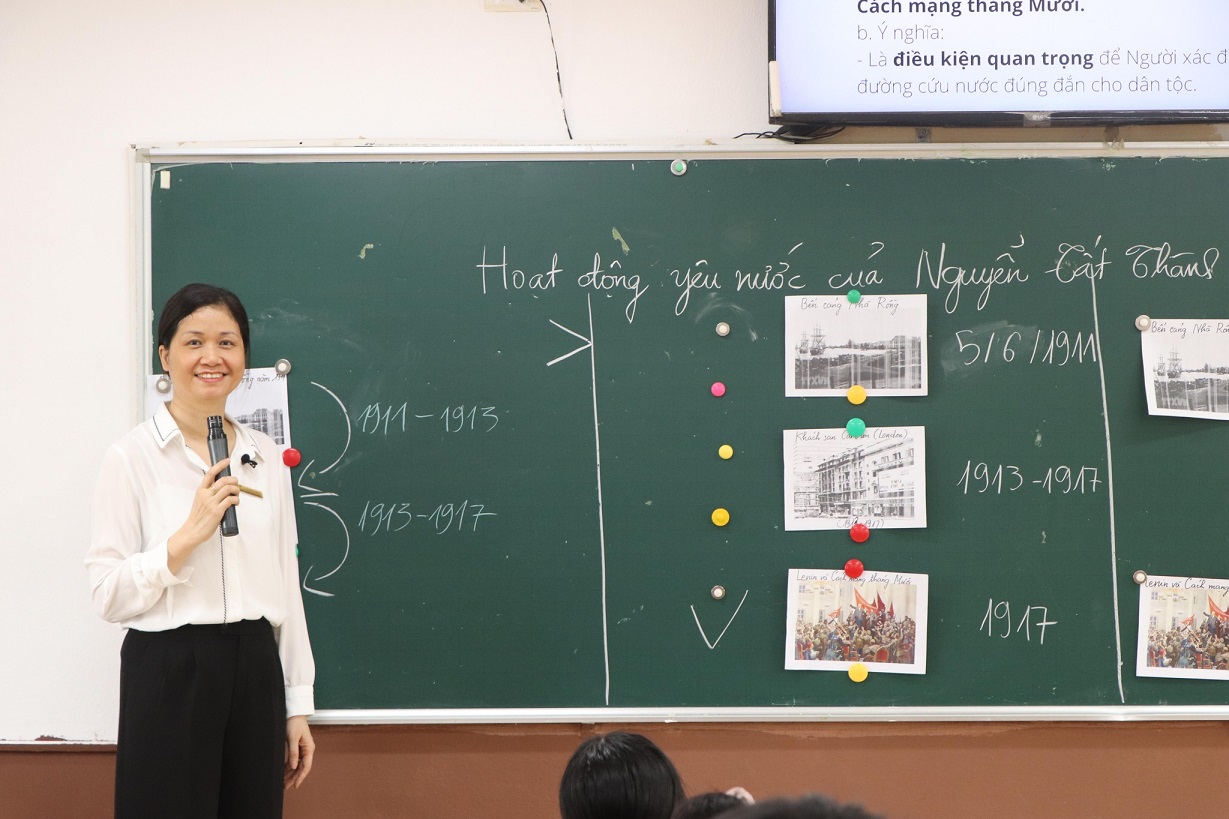 Cách mạng tháng Mười.
b. Ý nghĩa:
- Là điều kiện quan trọng để Người xác đ
đường cứu nước đúng đắn cho dân tộc.
Hoạt động yêu nước của Nguyễn Tất Thành
1911 - 1913
1913 - 1917
Bến cảng Nhà Rồng
5/6/1911
Khách sạn (London)
1913 - 1917
Lenin và Cách mạng tháng Mười
1917
Bến cảng Nhà Rồ
Lenin và Cách mạng